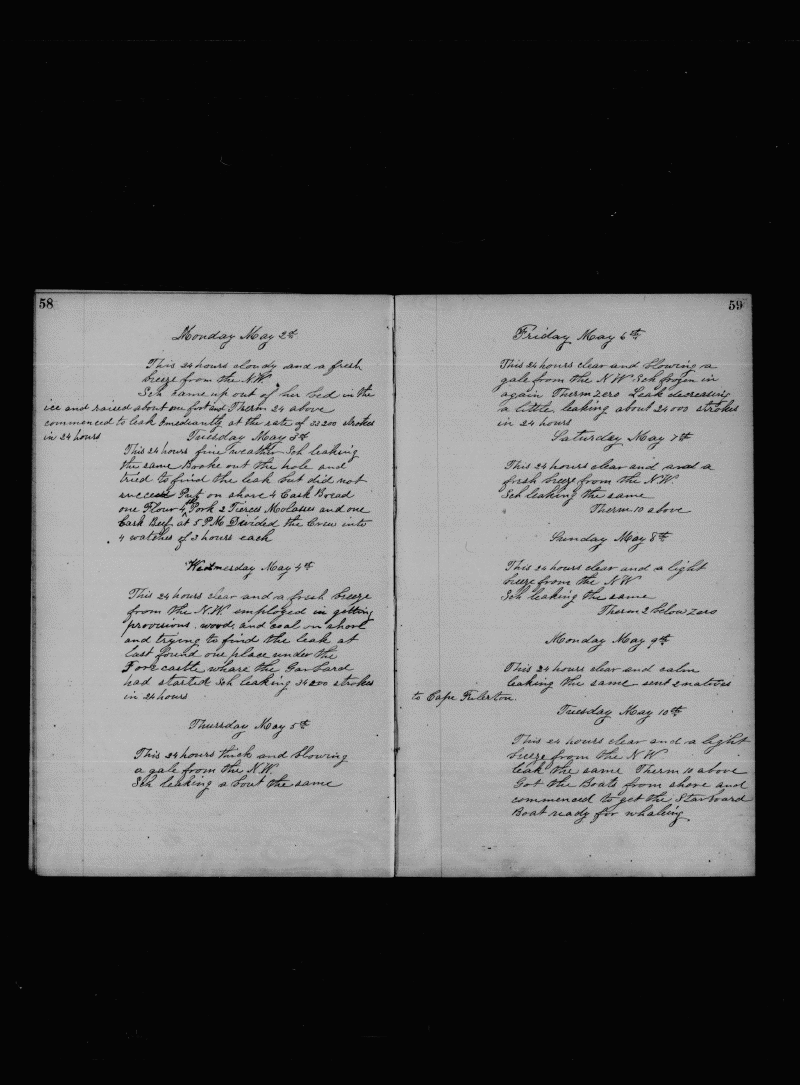 58
Monday May 2th
This 24 hours cloudy and a fresh
breeze from the N.W.
Sch came up out of her bed in the
ice and raised about one foot and Therm 24 above
commenced to leak Imediantly at the rate of 33200 strokes
in 24 hours
Tuesday May 3th
This 24 hours fine weather Sch leaking
the same Broke out the hole and
tried to find the leak but did not
succeed Put on shore 4 Cask Bread
one Flour 4 Pork 2 Tierces Molasses and one
Cask Beef at 5 P.M. Divided the Crew into
4 watches of 3 hours each
Wednesday May 4th
This 24 hours clear and a fresh breeze
from the N.W. employed in getting
provisions, wood, and coal on shore
and trying to find the leak at
last found one place under the
Fore castle whare the Garbard
had started Sch leaking 34200 strokes
in 24 hours
Thursday May 5th
This 24 hours thick and blowing
a gale from the N.W.
Sch leaking a bout the same
59
Friday May 6th
This 24 hours clear and blowing a
gale from the N W Sch frozen in
again Therm Zero Leak decreasing
a little leaking about 24000 strokes
in 24 hours
Saturday May 7th
This 24 hours clear and and a
fresh breeze from the N.W.
Sch leaking the same
Therm 10 above
Sunday May 8th
This 24 hours clear and a light
breeze from the N.W.
Sch leaking the same
Therm 2 below Zero
Monday May 9th
This 24 hours clear and calm
leaking the same sent 2 natives
to Cape Fulerton.
Tuesday May 10th
This 24 hours clear and a light
breeze from the N.W.
leak the same Therm 10 above
Got the Boats from shore and
commenced to get the Starboard
Boat ready for whaleing